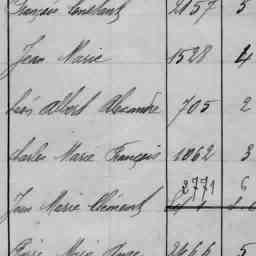 François Constant 2057 5
Jean Marie 1528 4
Léon Albert Alexandre 705 2
Charles Marie François 1062 3
2771 6
Jean Marie Clément
Marie 2466 5